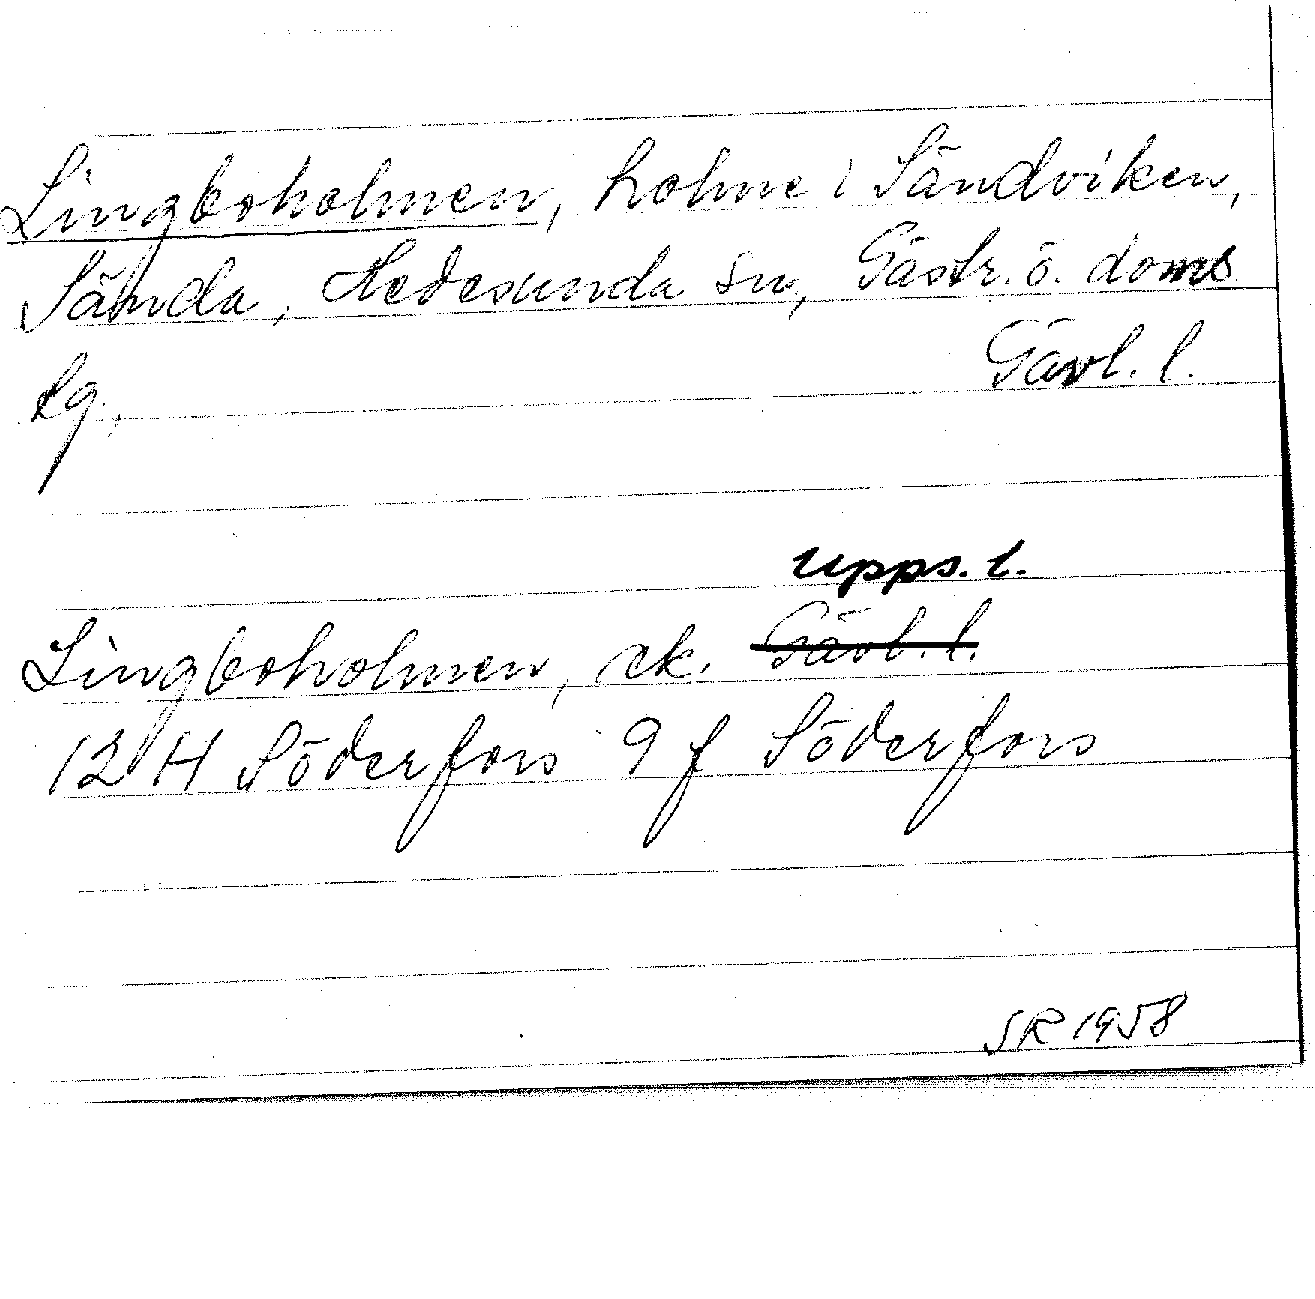 Lingboholmen, holme i Sändviken,
Sända, Hedesunda sn, Gästr. ö. doms
lg. Gävl. l.
Upps. l.
Lingboholmen, ek. Gävl. l.
12 H Söderfors 9 f Söderfors
SR 1958